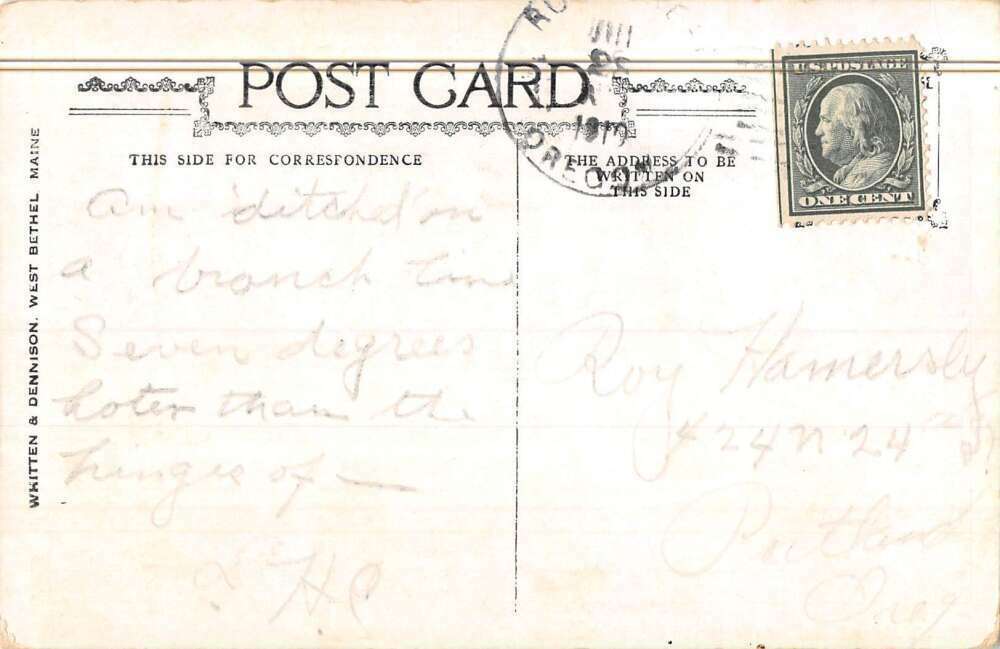 POST CARD
U.S. POSTAGE
ONE CENT
OREGON
WHITTEN & DENNISON. WEST BETHEL MAINE
THIS SIDE FOR CORRESFONDENCE
THE ADDRESS TO BE
WRITTEN ON
THIS SIDE
Am ditched on
a branch line
Seven degrees
hoter than the
hinges of —
HC
Roy Hamersly
424 N 24th St
Portland
Oreg